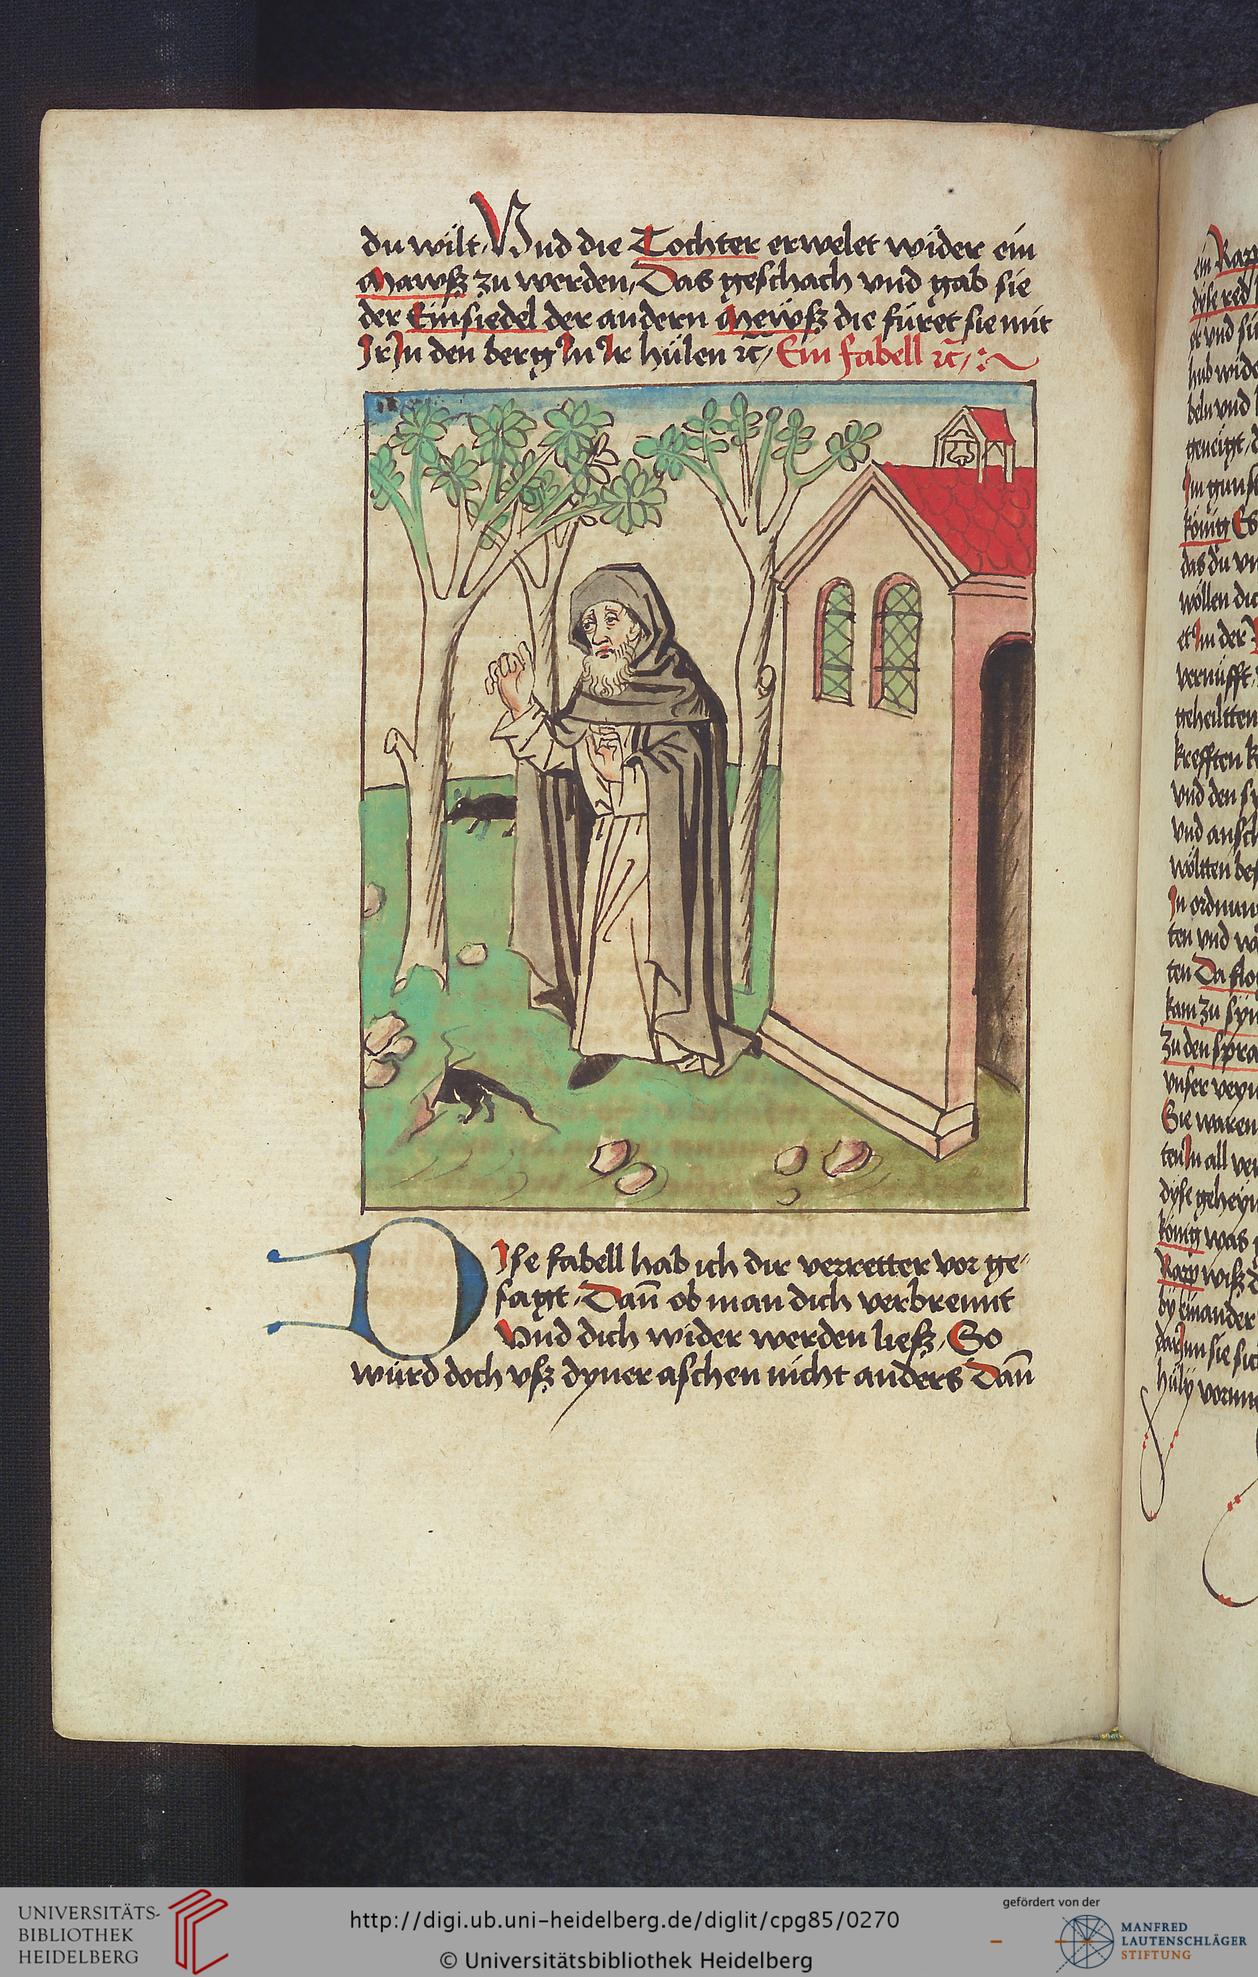 du wilt. Vnd die Tochter erwelet wider ein
Mawß zu werden, Das geschach vnd gab sie
der Einsiedel der andern Mewß die füret sie mit
Ir In den berg In Ir hülen ꝛc̃, Ein fabell ꝛc̃,
DIse fabell hab ich dir verretter vor ge-
sagt, Dañ ob man dich verbrennt
Vnd dich wider werden ließ, So
würd doch vsz dyner aschen nicht anders Dañ
ein Rapp
dyse red
et vnd
hub wide
beln vnd
geneigt,
Im gunst
könig Es
das du
wöllen dich
et Im der
vernüfft
geheiltten
krefften
vnd den
vnd ansch
wöltten bes
In ordnun
ten vnd
ten Da flo
kam zu syn
zu den spra
vnser veyn
Sie waren
ten In all
dyse geheyn
könig was
Rapp wißt
by einander
dar Inn sie sich
UNIVERSITÄTS-
BIBLIOTHEK
HEIDELBERG
http://digi.ub.uni-heidelberg.de/diglit/cpg85/0270
© Universitätsbibliothek Heidelberg
gefördert von der
MANFRED
LAUTENSCHLÄGER
STIFTUNG